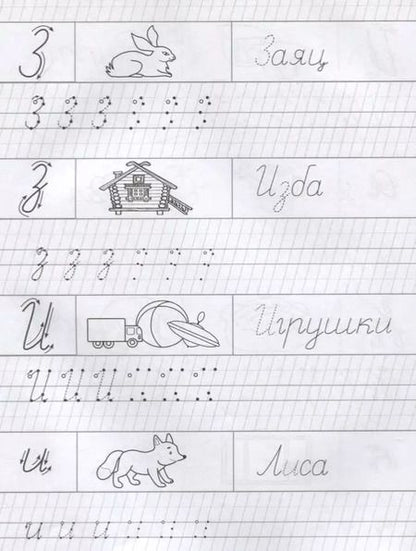 З Заяц
З З З
з Изба
з з з
И Игрушки
И И И
и Лиса
и и и